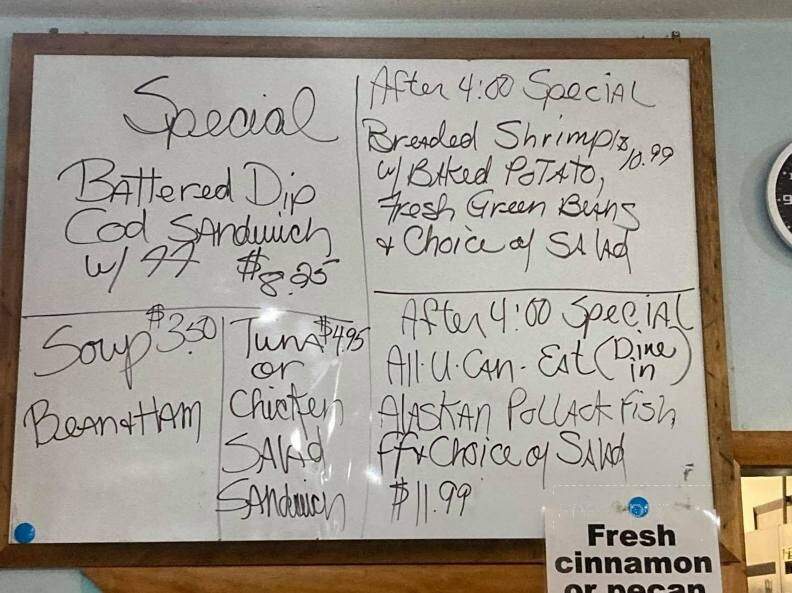 Special
Battered Dip
Cod Sandwich
w/ FF $8.25
Soup $3.50
Bean & Ham
Tuna $4.95
or
Chicken
Salad
Sandwich
After 4:00 Special
Breaded Shrimp
w/ Baked Potato, $10.99
Fresh Green Beans
& Choice of Salad
After 4:00 Special
All-U-Can-Eat (Dine
in)
Alaskan Pollack Fish,
ff & Choice of Salad
$11.99
Fresh
cinnamon
or pecan